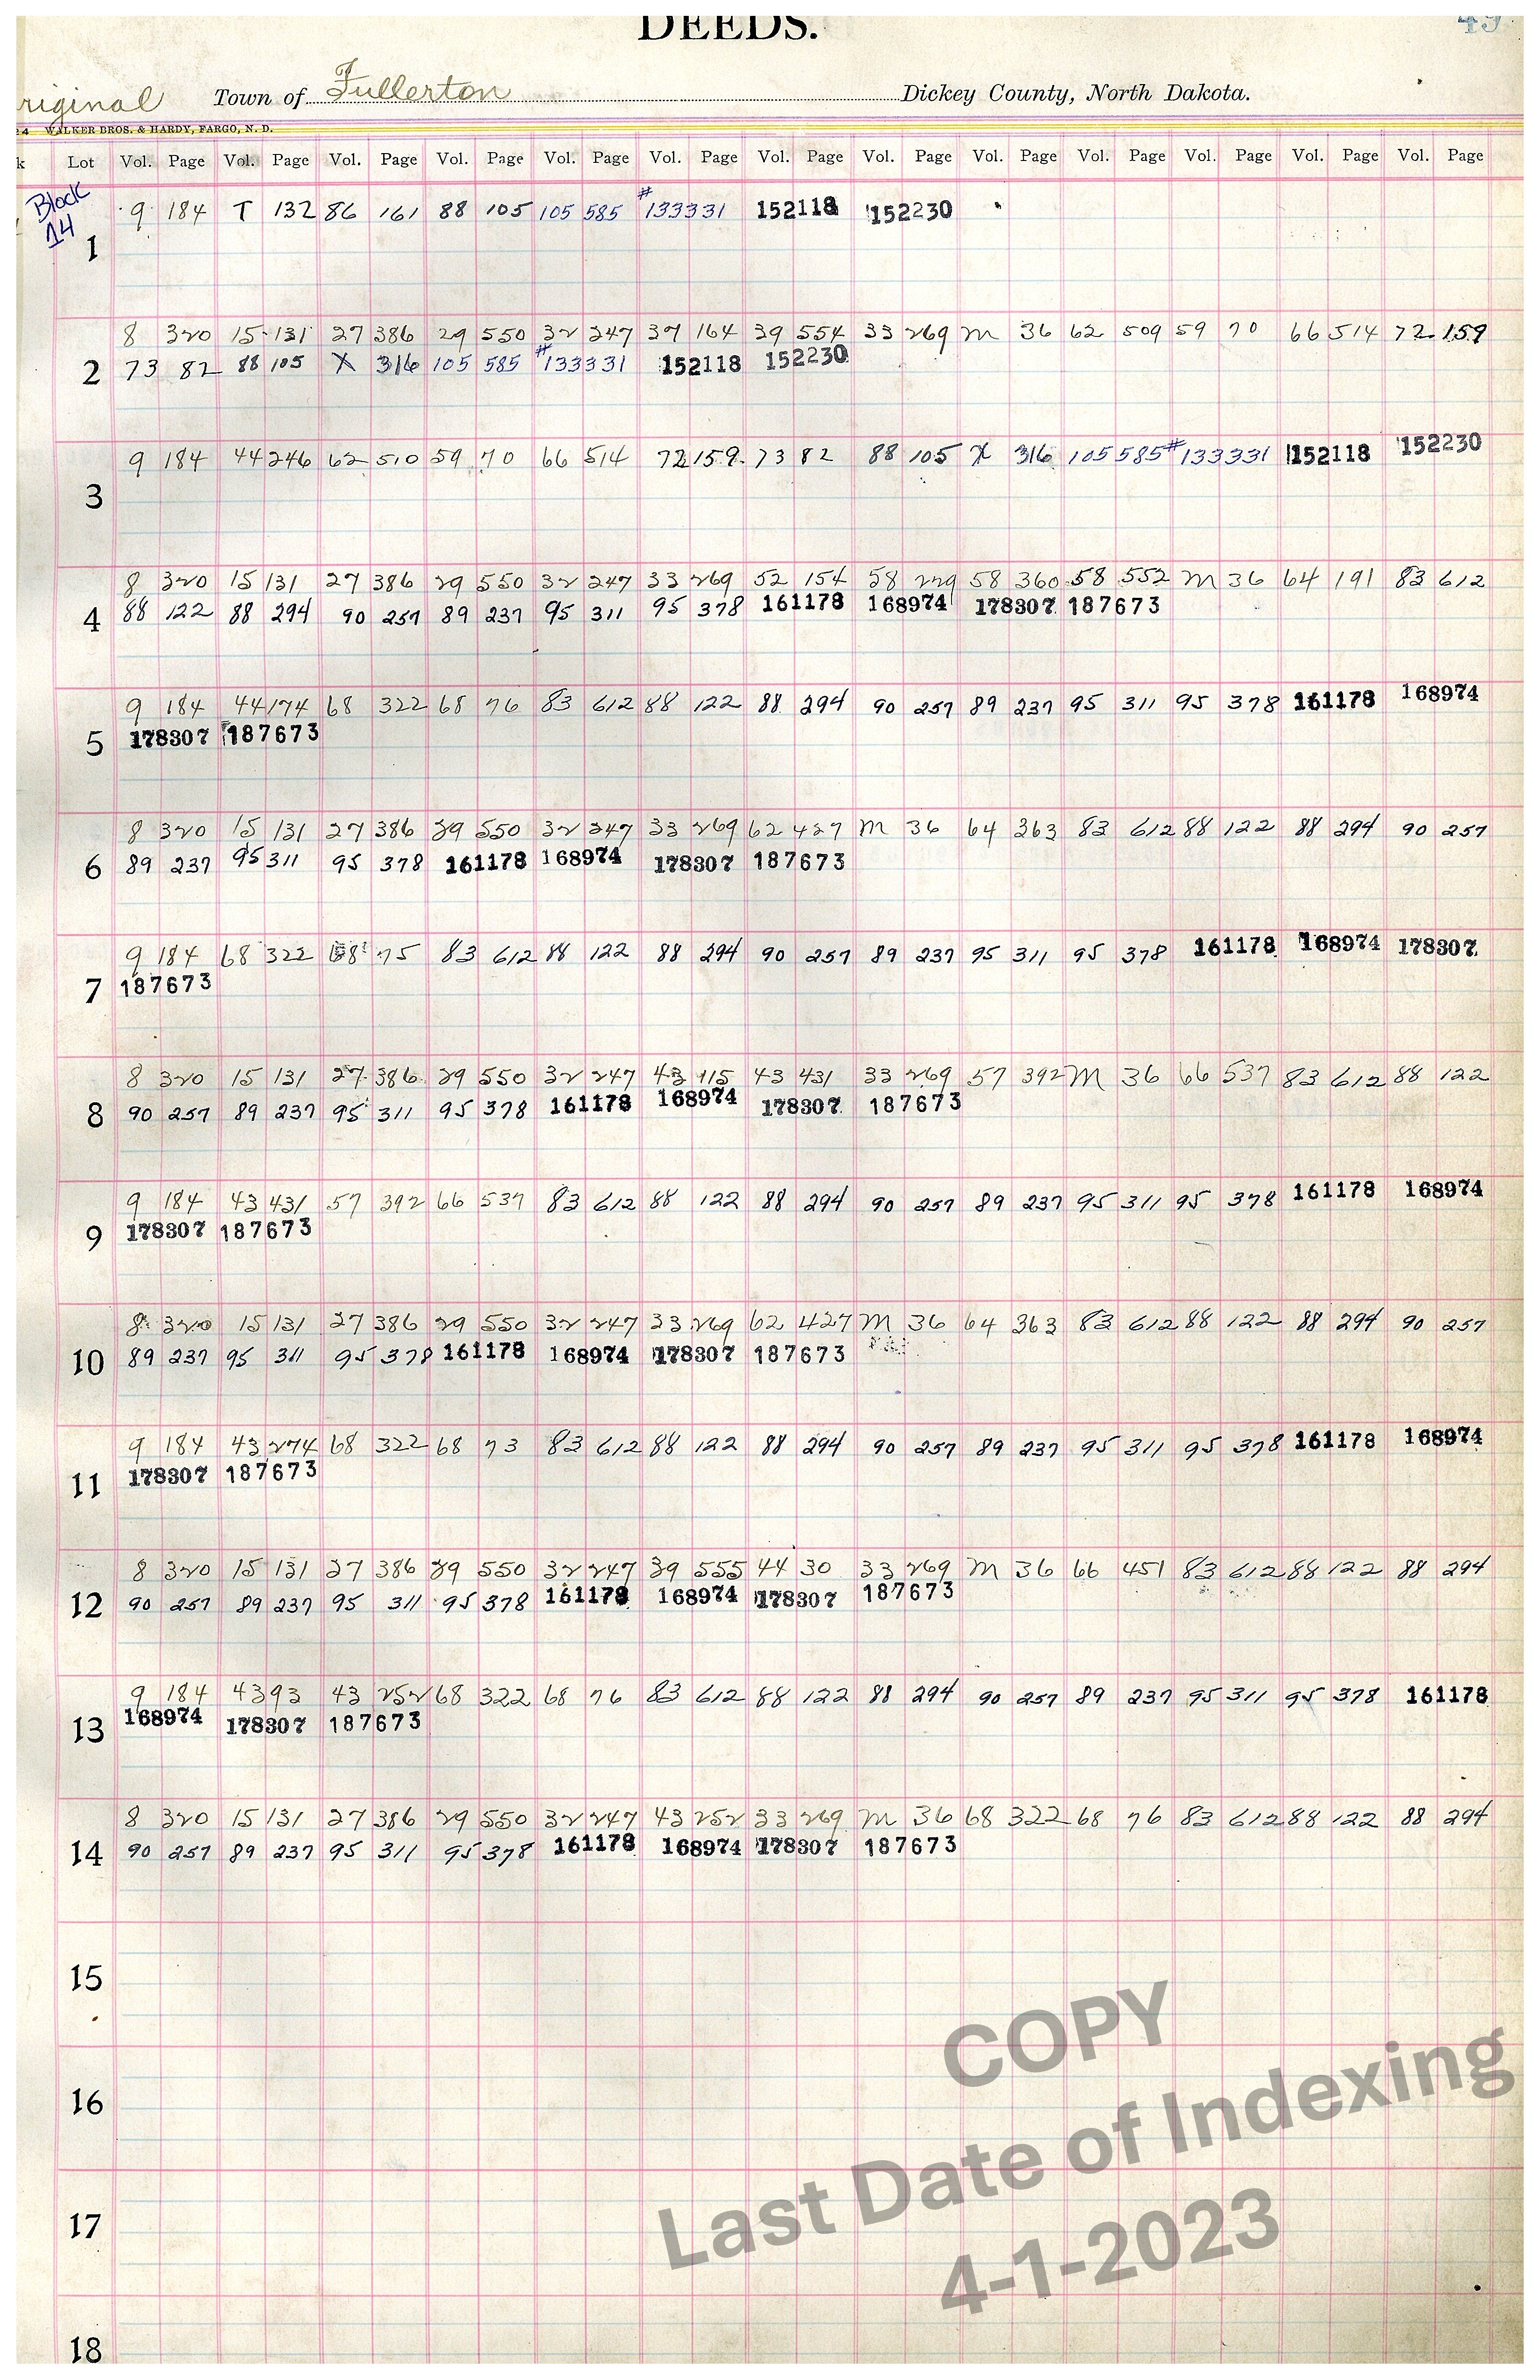 DEEDS.
49
riginal Town of Fullerton Dickey County, North Dakota.
24 WALKER BROS. & HARDY, FARGO, N. D.
k Lot Vol. Page Vol. Page Vol. Page Vol. Page Vol. Page Vol. Page Vol. Page Vol. Page Vol. Page Vol. Page Vol. Page Vol. Page Vol. Page
Block
14
9 184 T 132 86 161 88 105 105 585 #133331 152118 152230
1
8 320 15 131 27 386 29 550 32 247 37 164 39 554 33 269 M 36 62 509 59 70 66 514 72 159
2 73 82 88 105 X 316 105 585 #133331 152118 152230
9 184 44 246 62 510 59 70 66 514 72 159 73 82 88 105 X 316 105 585 #133331 152118 152230
3
8 320 15 131 27 386 29 550 32 247 33 269 52 154 58 229 58 360 58 552 M 36 64 191 83 612
4 88 122 88 294 90 257 89 237 95 311 95 378 161178 168974 178307 187673
9 184 44 174 68 322 68 76 83 612 88 122 88 294 90 257 89 237 95 311 95 378 161178 168974
5 178307 187673
8 320 15 131 27 386 29 550 32 247 33 269 62 427 M 36 64 363 83 612 88 122 88 294 90 257
6 89 237 95 311 95 378 161178 168974 178307 187673
9 184 68 322 68 75 83 612 88 122 88 294 90 257 89 237 95 311 95 378 161178 168974 178307
7 187673
8 320 15 131 27 386 29 550 32 247 43 115 43 431 33 269 57 392 M 36 66 537 83 612 88 122
8 90 257 89 237 95 311 95 378 161178 168974 178307 187673
9 184 43 431 57 392 66 537 83 612 88 122 88 294 90 257 89 237 95 311 95 378 161178 168974
9 178307 187673
8 320 15 131 27 386 29 550 32 247 33 269 62 427 M 36 64 363 83 612 88 122 88 294 90 257
10 89 237 95 311 95 378 161178 168974 178307 187673
9 184 43 274 68 322 68 73 83 612 88 122 88 294 90 257 89 237 95 311 95 378 161178 168974
11 178307 187673
8 320 15 131 27 386 29 550 32 247 39 555 44 30 33 269 M 36 66 451 83 612 88 122 88 294
12 90 257 89 237 95 311 95 378 161178 168974 178307 187673
9 184 43 93 43 252 68 322 68 76 83 612 88 122 88 294 90 257 89 237 95 311 95 378 161178
13 168974 178307 187673
8 320 15 131 27 386 29 550 32 247 43 252 33 269 M 36 68 322 68 76 83 612 88 122 88 294
14 90 257 89 237 95 311 95 378 161178 168974 178307 187673
15
16
17
18
COPY
Last Date of Indexing
4-1-2023